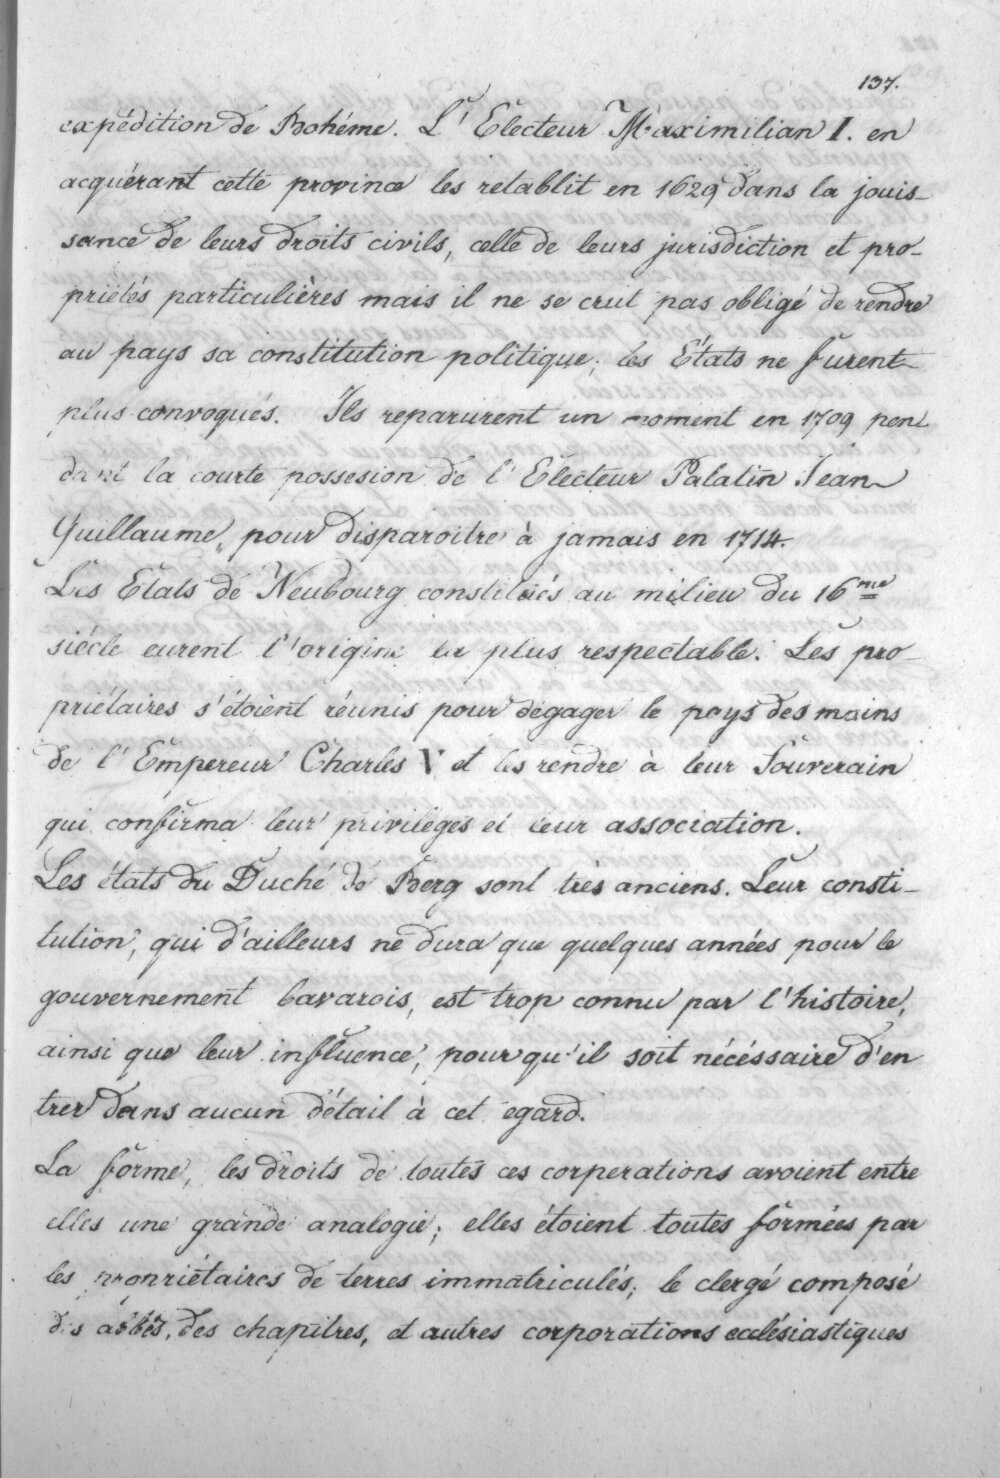 137.
expédition de Bohéme. L'Electeur Maximilian I. en
acquérant cette province les retablit en 1629 dans la jouis-
sance de leurs droits civils, celle de leurs jurisdiction et pro-
priétés particulières mais il ne se crut pas obligé de rendre
au pays sa constitution politique; les États ne furent
plus convoqués. Ils reparurent un moment en 1709 pen
dant la courte possesion de l'Electeur Palatin Jean
Guillaume, pour disparoitre à jamais en 1714.
Les Etats de Neubourg constitués au milieu du 16me
siécle eurent l'origine la plus respectable. Les pro-
priétaires s'étoient réunis pour dégager le pays des mains
de l'Empereur Charles V et les rendre à leur Souverain
qui confirma leur privilèges et leur association.
Les états du Duché de Berg sont très anciens. Leur consti-
tution, qui d'ailleurs ne dura que quelques années pour le
gouvernement bavarois, est trop connu par l'histoire,
ainsi que leur influence, pour qu'il soit nécéssaire d'en
trer dans aucun détail à cet egard.
La forme, les droits de toutes ces corperations avoient entre
elles une grande analogie; elles étoient toutes formées par
les propriétaires de terres immatriculés; le clergé composé
des abbés, des chapitres, et autres corporations ecclésiastiques